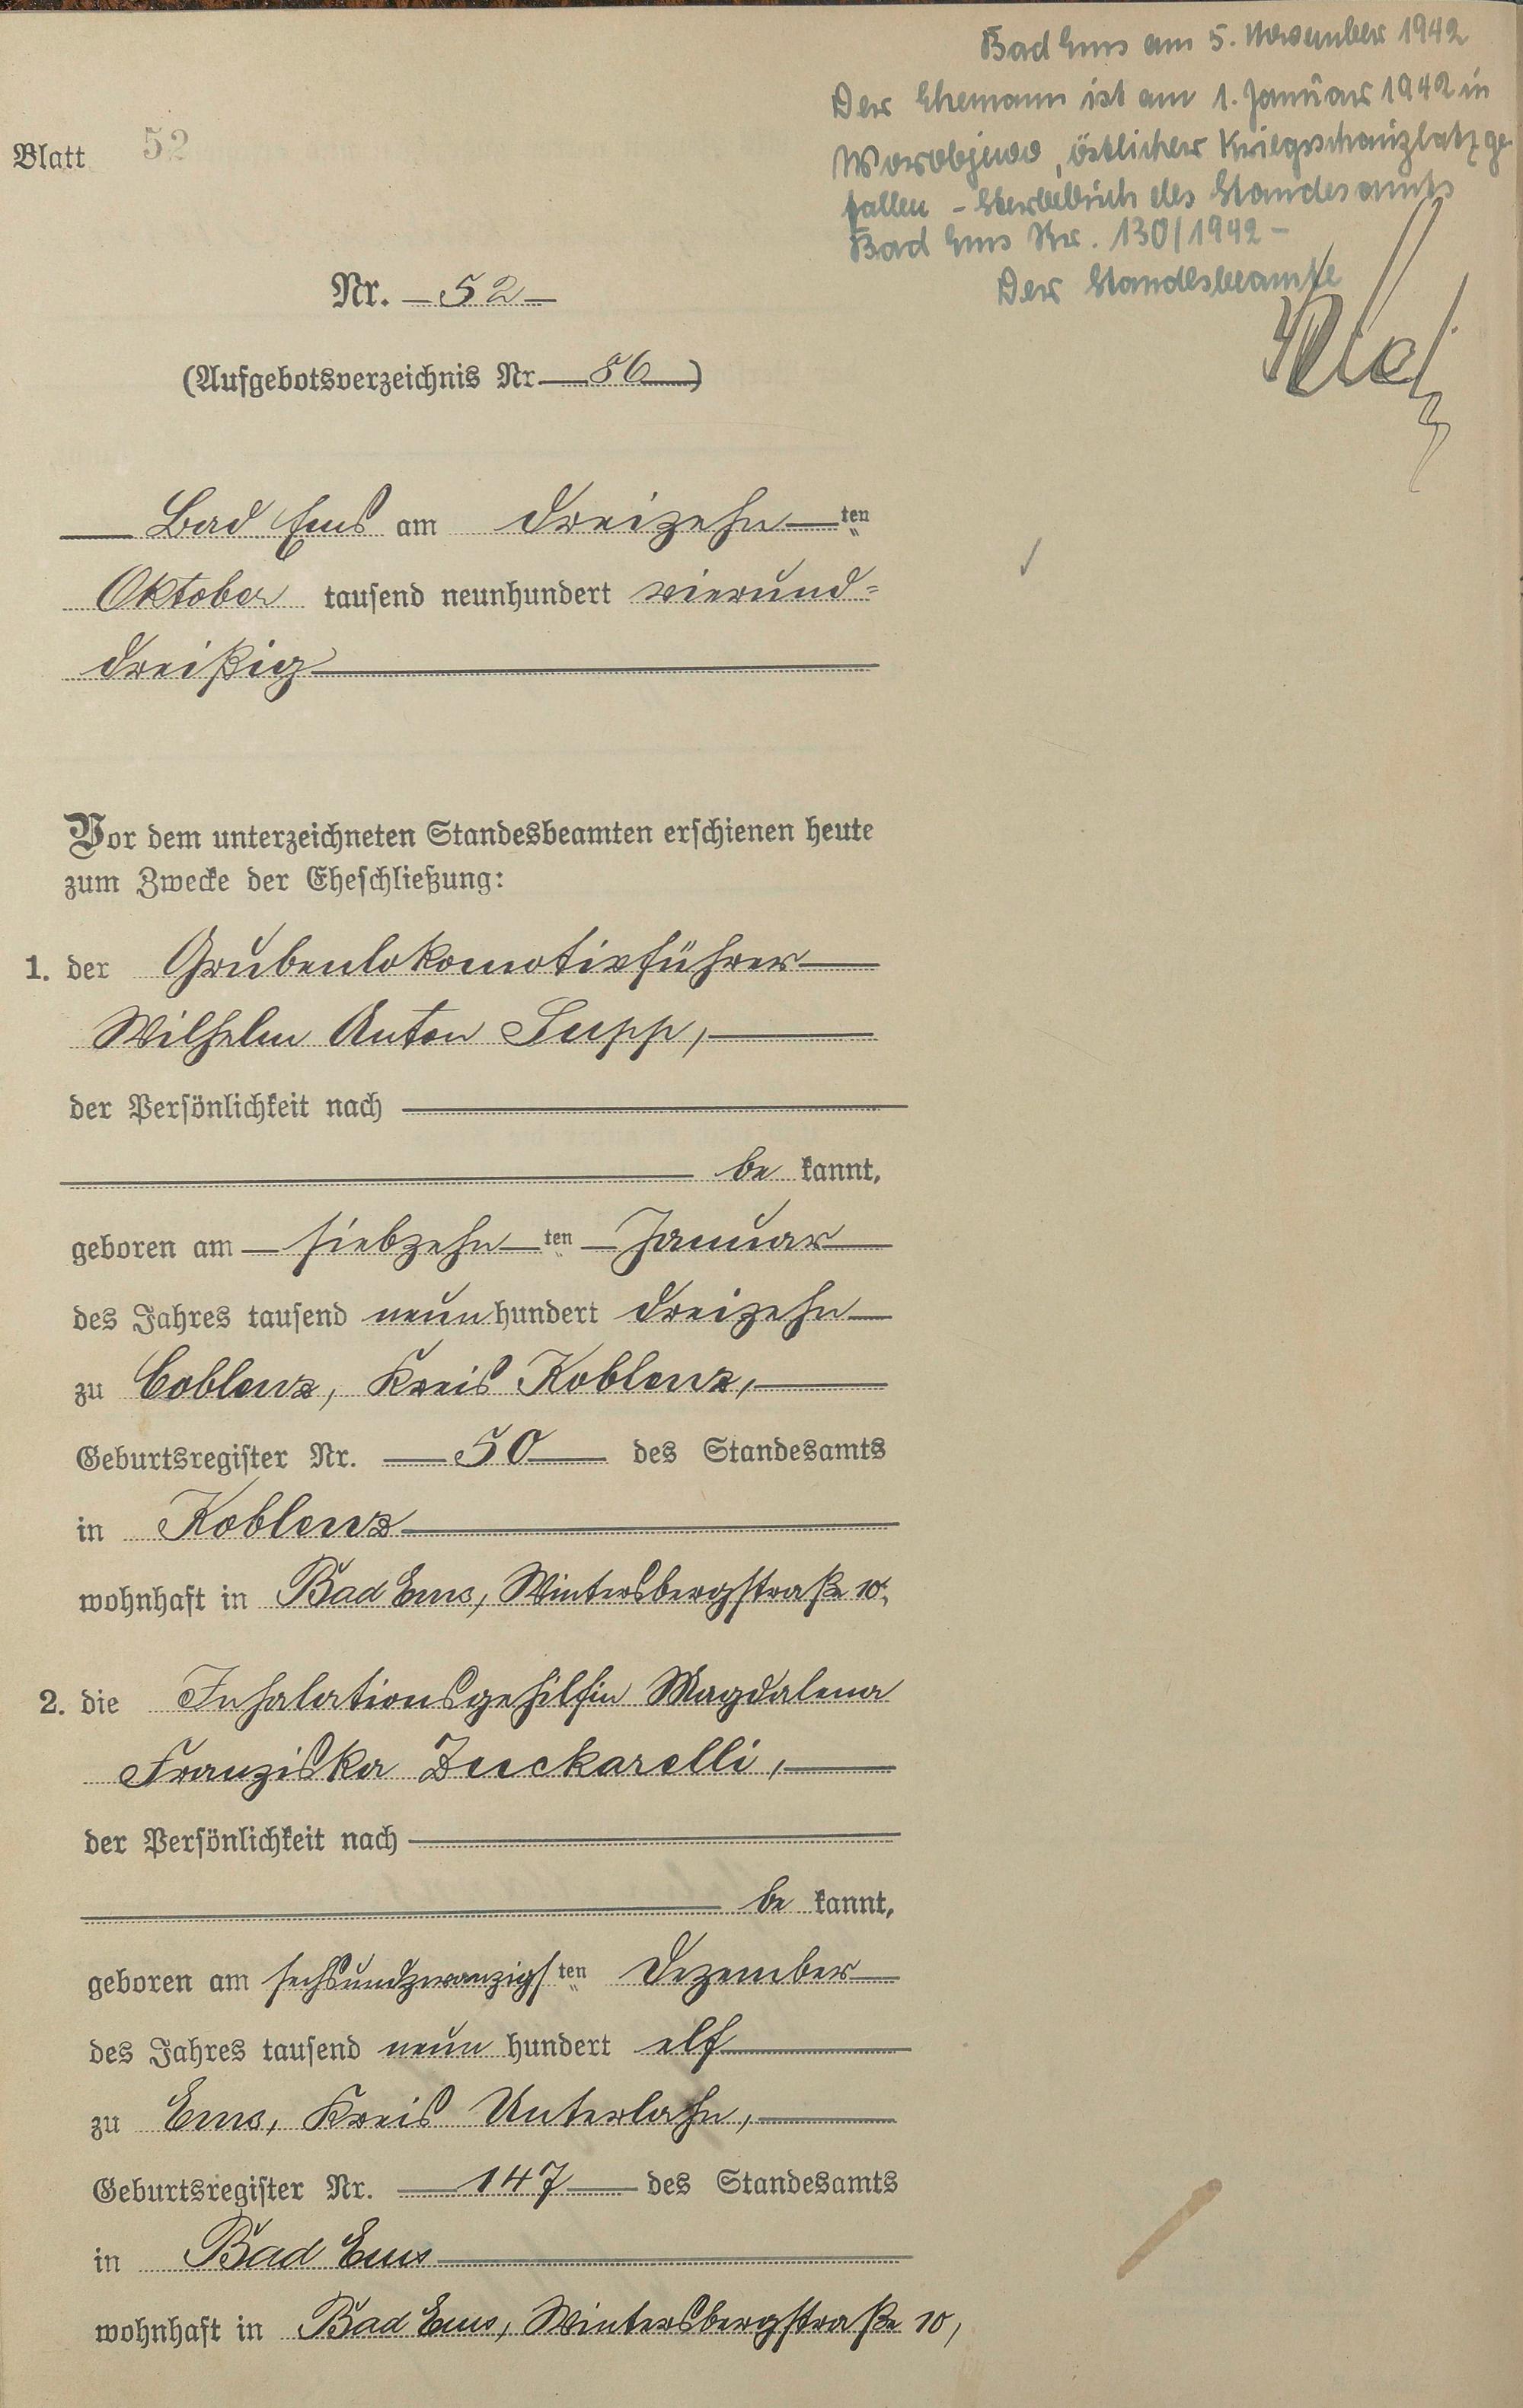 Bad Ems am 5. November 1942
Der Ehemann ist am 1. Januar 1942 in
Worobjewo, östlicher Kriegsschauplatz ge-
fallen - Sterbebuch des Standesamts
Bad Ems Nr. 130/1942 -
Der Standesbeamte
Blatt 52
Nr. 52
(Aufgebotsverzeichnis Nr. 86)
Bad Ems am dreizehnten
Oktober tausend neunhundert vierund=
dreißig
Vor dem unterzeichneten Standesbeamten erschienen heute
zum Zwecke der Eheschließung:
1. der Grubenlokomotivführer
Wilhelm Anton Supp,
der Persönlichkeit nach
be kannt,
geboren am siebzehnten Januar
des Jahres tausend neunhundert dreizehn
zu Coblenz, Kreis Koblenz,
Geburtsregister Nr. 50 des Standesamts
in Koblenz
wohnhaft in Bad Ems, Wintersbergstraße 10,
2. die Inhalationsgehilfin Magdalena
Franziska Zuckarelli,
der Persönlichkeit nach
be kannt,
geboren am sechsundzwanzigsten Dezember
des Jahres tausend neun hundert elf
zu Ems, Kreis Unterlahn,
Geburtsregister Nr. 147 des Standesamts
in Bad Ems
wohnhaft in Bad Ems, Wintersbergstraße 10,